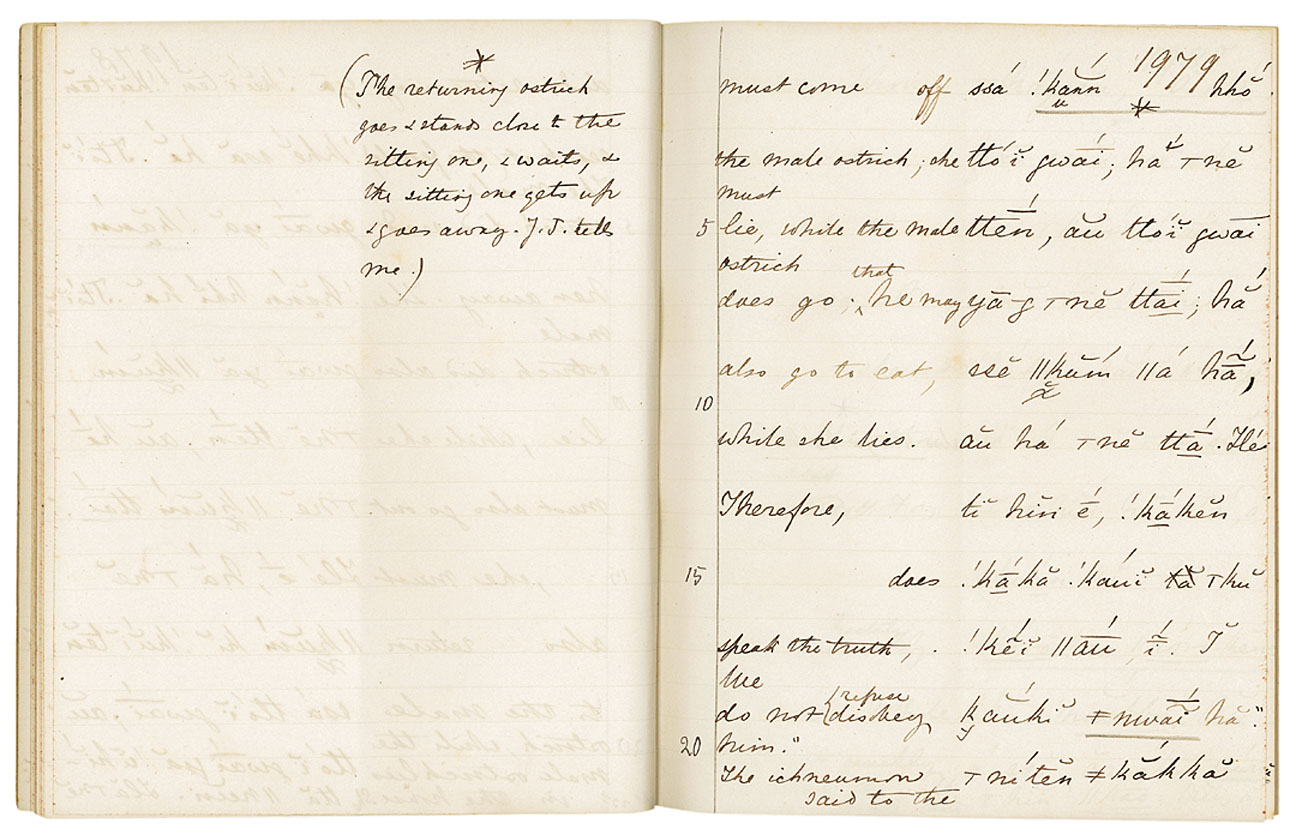 *
(The returning ostrich
goes & stands close to the
sitting one, & waits, &
the sitting one gets up
& goes away. J.T. tells
me.)
1979
must come off ssá !kann khŏ.
*
the male ostrich; she ttóĭ gwāí; hă ⊤nĕ
must
5 lie, while the male ttēń, ău ttóĭ gwāī
ostrich
that
does go; he may yā-g ⊤nĕ ttāí; hắ
also go to eat, ssĕ ||kŭḿ ||á hā̃,
10
while she lies. ău há ⊤nĕ ttā́. Ílé
Therefore, tĭ hĭń é, !kā́kĕn
15 does !kā́kă !kaúĭ ⊤kŭ
speak the truth, . !kĕ́ĭ ||āú ĭ̃. Ĭ
We
(refuse
do not disobey kaúkĭ ≠nwāĭ hă."
20 him."
The ichneumon ⊤nítĕn ≠kákkă
said to the